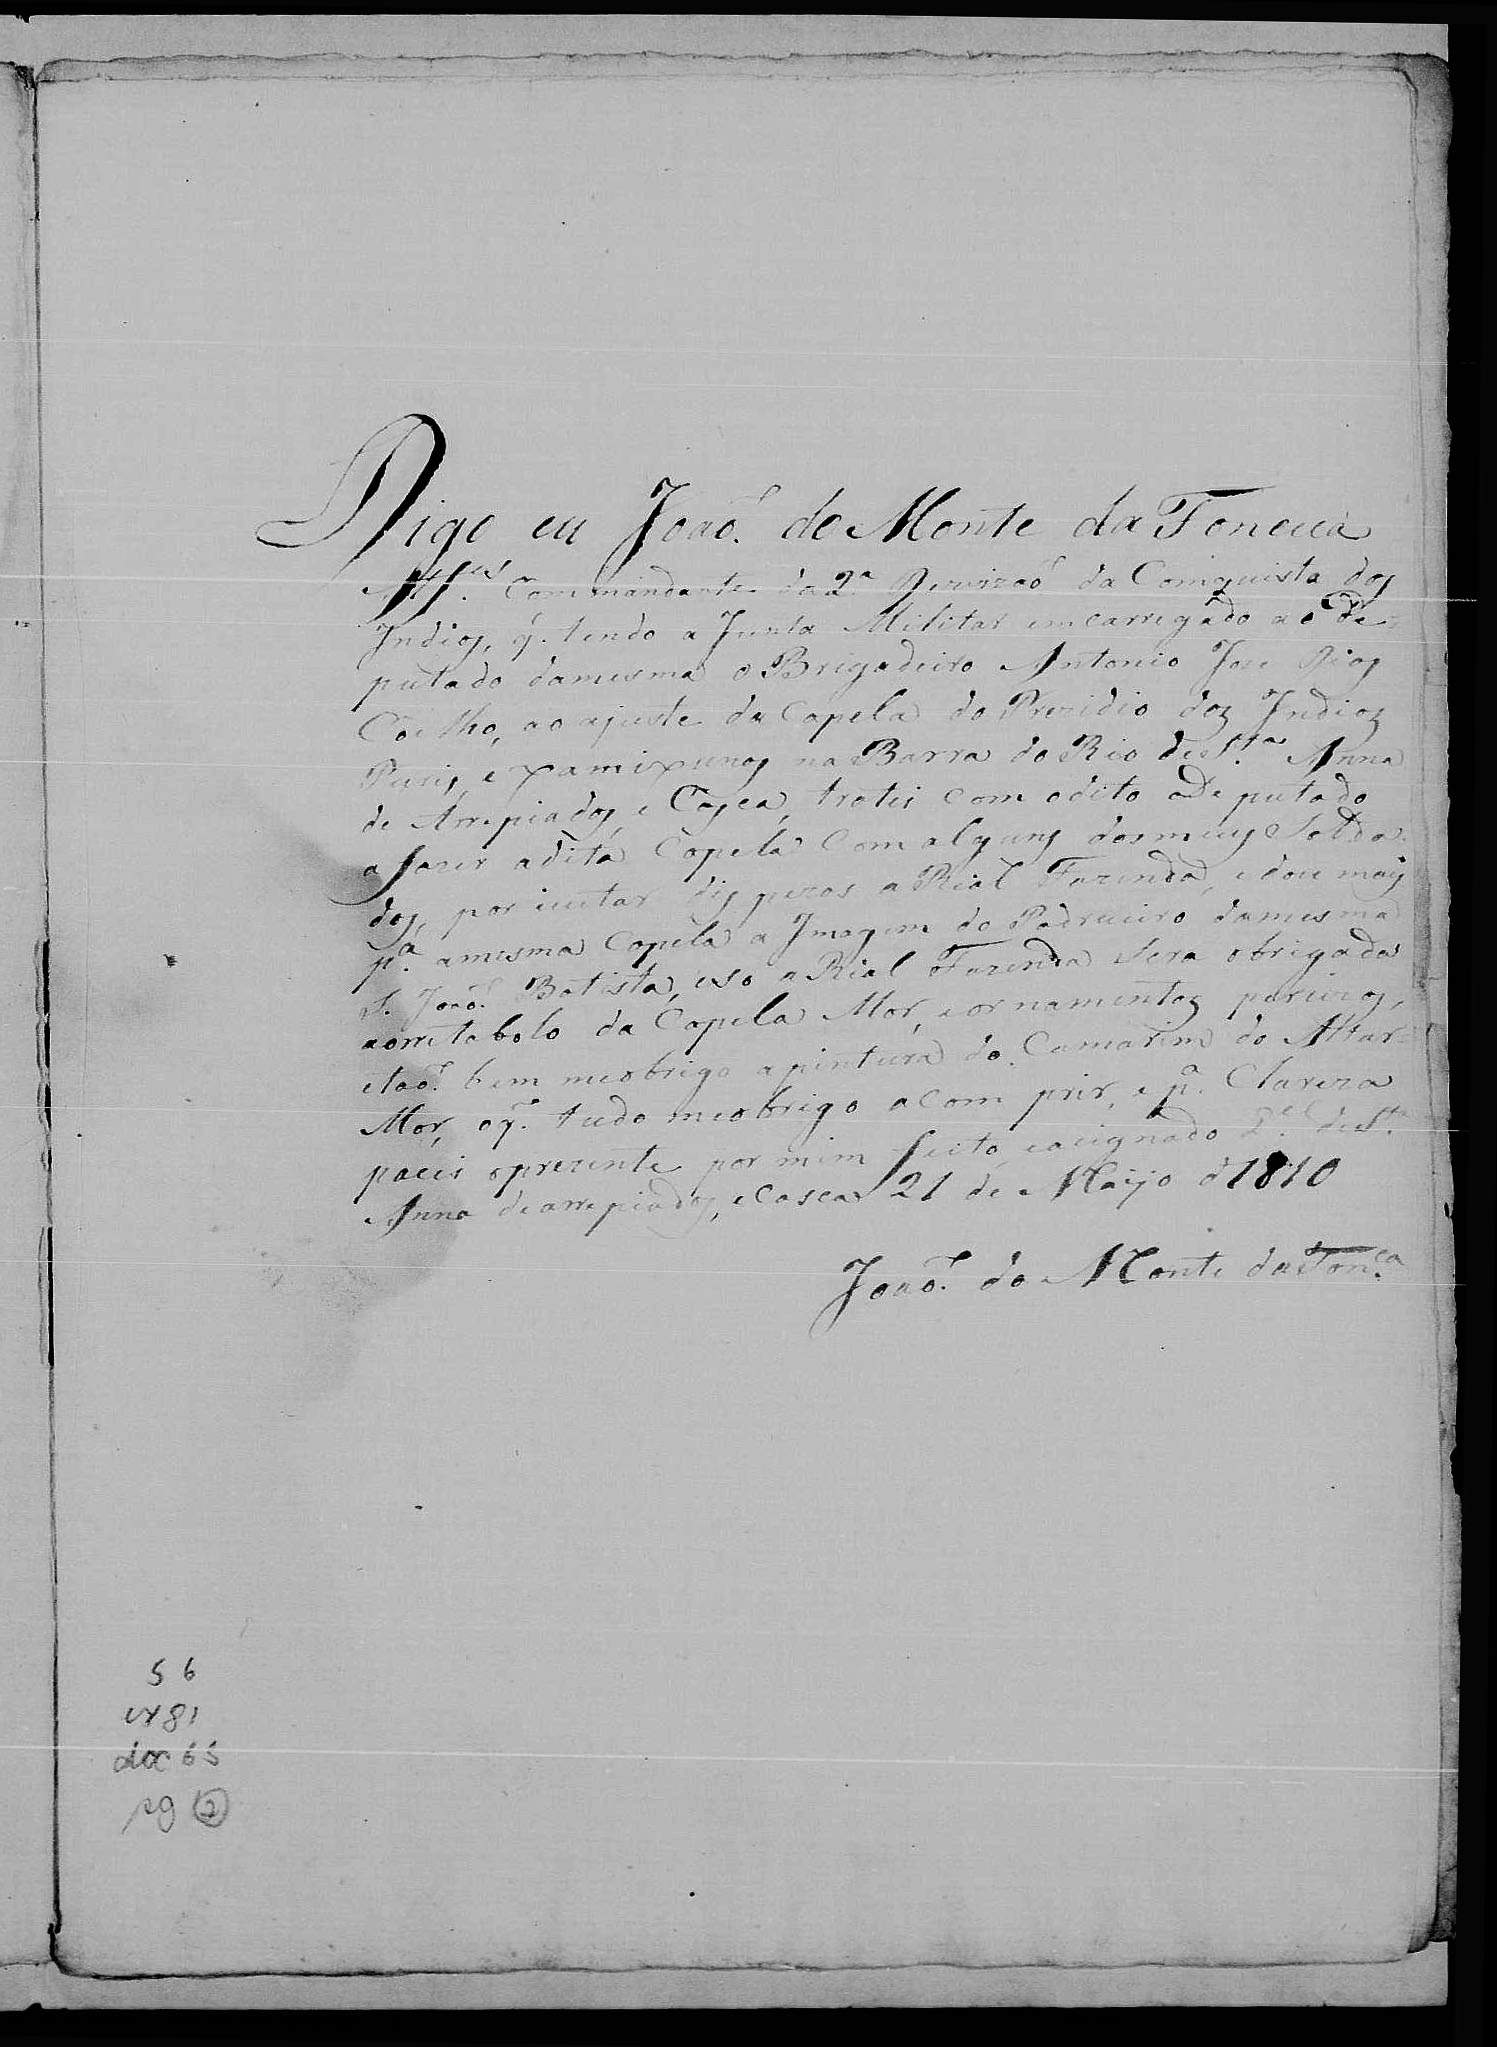 Digo eu João do Monte da Fonceca
Alfes. Commandante da 2ª Devizaõ da Comquista dos
Indios, q. tendo a Junta Militar emcarregado ao De-
putado damesma o Brigadeiro Antonio Joze Dias
Coelho, ao ajuste da Capela do Prezidio dos Indios
Puris, e Xamixunas na Barra do Rio de Sta. Anna
de Arrepiados, e Casca, trateis com odito Deputado
a fazer adita Capela com alguns dosmeus Solda-
dos, por ivitar dispezas a Rial Fazenda, e dou mais
pª. amesma Capela a Imagem do Padrueiro damesma
S. Joaõ Batista, eso a Rial Fazenda Sera obrigada
aorretabolo da Capela Mor, eornamentos percizos,
etaõ bem meobrigo apintura do Camarim do Altar
Mor, oq. tudo meobrigo acom prir, e pª. Clareza
pacei oprezente por mim feito, eacignado Qel. de Sta.
Anna dearrepiados, eCasca 21 de Maijo d 1810
Joaõ do Monte da Fonca.
56
cx 81
doc 65
pg 2